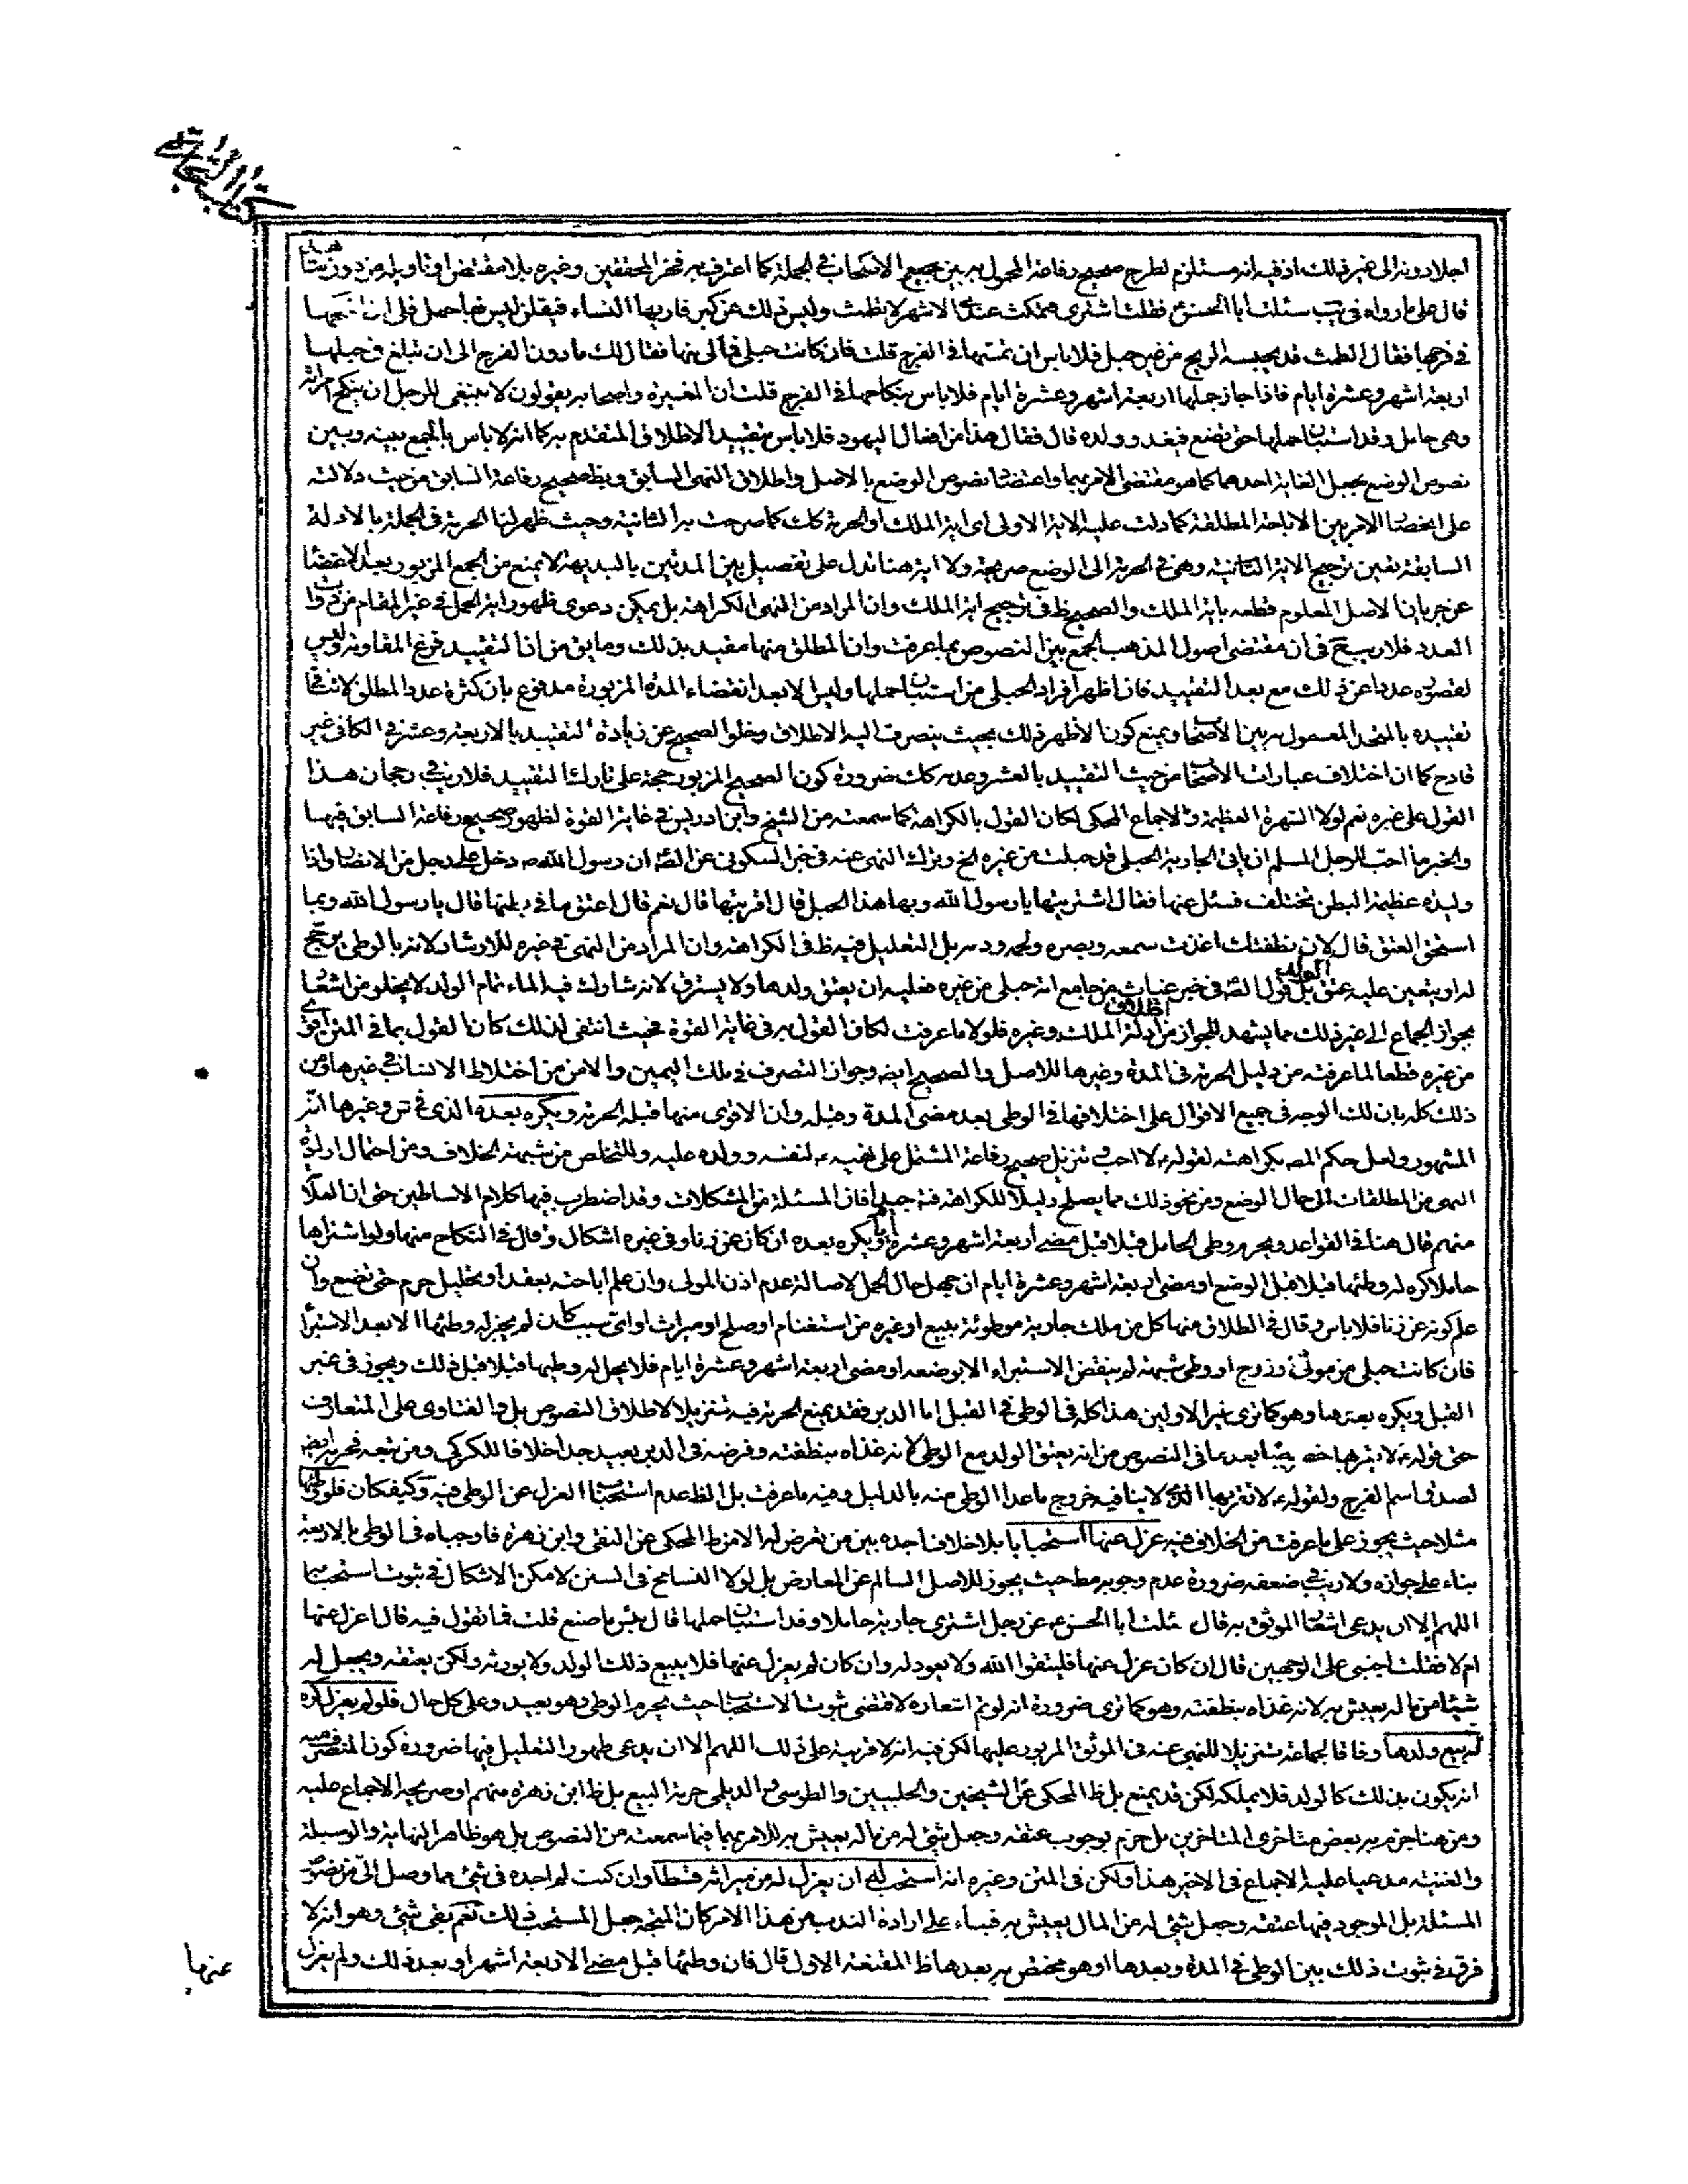 كتاب التجارة
اجلا دونه الى غير ذلك اذ فيه انه مستلزم لطرح صحيح رفاعة المعمول به بين جميع الاصحاب في الجملة كما اعترف به فخر المحققين وغيره بلا مقتض او تاويله من دون
قال على ما رواه في يب سئلت ابا الحسن ع فقلت اشترى فتمكث عندى الاشهر لا تطمث وليس ذلك عن كبر فاريها النساء فيقلن ليس بها حمل فلى ان انكحها
في فرجها فقال الطمث قد يحبسه الريح من غير حبل فلا باس ان تمسها في الفرج قلت فان كانت حبلى فمالى منها فقال لك ما دون الفرج الى ان تبلغ في حبلها
اربعة اشهر وعشرة ايام فاذا جاز حملها اربعة اشهر وعشرة ايام فلا باس بنكاحها في الفرج قلت ان المغيرة واصحابه يقولون لا ينبغى للرجل ان ينكح امراته
وهى حامل وقد استبان حملها حتى تضع فيغذو ولده قال فقال هذا من افعال اليهود فلا باس بتقييد الاطلاق المتقدم به كما انه لا باس بالجمع بينه وبين
نصوص الوضع بجعل الغاية احدهما كما هو مقتضى الامر بهما واعتضاد نصوص الوضع بالاصل واطلاق النهى السابق وبظ صحيح رفاعة السابق من حيث دلالته
على اختصاص الامرين الاباحة المطلقة كما دلت عليه الاية الاولى اى اية الملك او الحرية كك كما صرحت به الثانية وحيث ظهر لنا الحرية في الجملة بالادلة
السابقة تعين ترجيح الاية الثانية وهى في الحرية الى الوضع صريحة ولا اية هنا تدل على تفصيل بين المدتين بالبديهة لا يمنع من الجمع المزبور بعد الاغضاء
عن جريان الاصل المعلوم قطعه باية الملك والصحيح ظ في ترجيح اية الملك وان المراد من النهى الكراهة بل يمكن دعوى ظهور اية الحمل في غير المقام من ذوات
العدد فلا ريب ح في ان مقتضى اصول المذهب الجمع بين النصوص بما عرفت وان المطلق منها مقيد بذلك وما يق من ان التقييد فرع المقاومة وليس
لقصوره عددا عن ذلك مع بعد التقييد فان اظهر افراد الحبلى من استبان حملها وليس الا بعد انقضاء المدة المزبورة مدفوع بان كثرة عدد المطلق لا تنفى
تقييده بالمتحد المعمول به بين الاصحاب ويمنع كون الاظهر ذلك بحيث ينصرف اليه الاطلاق وخلو الصحيح عن زيادة التقييد بالاربعة وعشر في الكافي غير
قادح كما ان اختلاف عبارات الاصحاب من حيث التقييد بالعشر وعدمه كك ضرورة كون الصحيح المزبور حجة على تارك التقييد فلا ريب في رجحان هذا
القول على غيره نعم لولا الشهرة العظيمة والاجماع المحكى لكان القول بالكراهة كما سمعته من الشيخ وابن ادريس في غاية القوة لظهور صحيح رفاعة السابق فيها
والخبر ما احب للرجل المسلم ان ياتى الجارية الحبلى قد حبلت من غيره الخ وبترك النهى عنه في خبر السكونى عن الص ان رسول الله ص دخل على رجل من الانصار واذا
وليدة عظيمة البطن تختلف فسئل عنها فقال اشتريتها يا رسول الله وبها هذا الحبل قال اقربتها قال نعم قال اعتق ما في بطنها قال يا رسول الله وبما
استحق العتق قال لان نطفتك اغذت سمعه وبصره ولحمه ودمه بل التعليل فيه ظ في الكراهة وان المراد من النهى في غيره للارشاد لانه بالوطى يرجح
له او يتعين عليه عتق الولد بل قول الص في خبر غياث من جامع امة حبلى من غيره فعليه ان يعتق ولدها ولا يسترق لانه شارك فيه الماء تمام الولد لا يخلو من اشعار
بجواز الجماع الى غير ذلك مما يشهد للجواز من اطلاق ادلة الملك وغيره فلولا ما عرفت لكان القول به في غاية القوة فحيث انتفى لذلك كان القول بما في المتن اقوى
من غيره قطعا لما عرفته من دليل الحرية في المدة وغيرها للاصل والصحيح ايضه وجواز التصرف في ملك اليمين والامن من اختلاط الانساب في غيرها ومن
ذلك كله بان لك الوجه في جميع الاقوال على اختلافها في الوطى بعد مضى المدة وقبله وان الاقوى منها قبله الحرية ويكره بعده الذى في س وغيرها انه
المشهور ولعل حكم المص بكراهته لقوله ع لا احب وتنزيل صحيح رفاعة المشتمل على نفيه ع لنفسه وولده عليه وللتخلص من شبهة الخلاف ومن احتمال ارادة
النهى من المطلقات الى حال الوضع ومن نحو ذلك مما يصلح دليلا للكراهة فته جيدا فان المسئلة من المشكلات وقد اضطرب فيها كلام الاساطين حتى ان العلامة
منهم قال هنا في القواعد ويحرم وطى الحامل قبلا قبل مضى اربعة اشهر وعشرة ايام ويكره بعده ان كان عن زنا وفي غيره اشكال وقال في النكاح منها ولو اشتراها
حاملا كره له وطئها قبلا قبل الوضع او مضى اربعة اشهر وعشرة ايام ان جهل حال الحمل لاصالة عدم اذن المولى وان علم اباحته بعقد او تحليل حرم حتى تضع وان
علم كونه عن زنا فلا باس وقال في الطلاق منها كل من ملك جارية موطوئة ببيع او غيره من استغنام او صلح او ميراث او اى سبب كان لم يجز له وطئها الا بعد الاستبراء
فان كانت حبلى من مولى او زوج او وطى شبهة لم ينقض الاستبراء الا بوضعه او مضى اربعة اشهر وعشرة ايام فلا يحل له وطيها قبلا قبل ذلك ويجوز في غير
القبل ويكره بعدها وهو كما ترى غير الاولين هذا كله في الوطى في القبل اما الدبر فقد يمنع الحرية فيه تنزيلا لاطلاق النصوص بل والفتاوى على المتعارف
حتى قوله ع لا يقربها خصوصا بعد ما في النصوص من انه يعتق الولد مع الوطى لانه غذاه بنطفته وفرضه في الدبر بعيد جدا خلافا للكركى ومن تبعه فحرمه ايضه
لصدق اسم الفرج ولقوله ع لا تقربها الذى لا ينافيه خروج ما عدا الوطى منه بالدليل وفيه ما عرفت بل الظ عدم استحباب العزل عن الوطى فيه وكيفكان فلو وطئها
مثلا حيث يجوز على ما عرفت من الخلاف فيه عزل عنها استحبابا بلا خلاف اجده بين من تعرض له الا من ظ المحكى عن التقى وابن زهرة فاوجباه في الوطى بالاربعة
بناء على جوازه ولا ريب في ضعفه ضرورة عدم وجوبه مط حيث يجوز للاصل السالم عن المعارض بل لولا التسامح في السنن لامكن الاشكال في ثبوت استحبابها
اللهم الا ان يدعى اشعار الموثق به قال سئلت ابا الحسن ع عن رجل اشترى جارية حاملا وقد استبان حملها قال بئس ما صنع قلت فما تقول فيه قال اعزل عنها
ام لا فقلت اجبنى على الوجهين قال ان كان عزل عنها فليتق الله ولا يعود له وان كان لم يعزل عنها فلا يبيع ذلك الولد ولا يورثه ولكن يعتقه ويجعل له
شيئا من ماله يعيش به لانه غذاه بنطفته وهو كما ترى ضرورة انه لو تم اشعاره لاقتضى ثبوت الاستحباب حيث يحرم الوطى وهو بعيد وعلى كل حال فلو لم يعزل كره
له بيع ولدها وفاقا لجماعة تنزيلا للنهى عنه في الموثق المزبور عليها لكن فيه انه لا قرينة على ذلك اللهم الا ان يدعى ظهور التعليل فيها ضرورة كون المتصرف فيه
انه يكون بذلك كالولد فلا يملكه لكن قد يمنع بل ظ المحكى عن الشيخين والحلبيين والطوسى والديلمى حرمة البيع بل ظ ابن زهرة منهم او صريحه الاجماع عليه
ومن هنا جزم به بعض متاخرى المتاخرين بل جزم بوجوب عتقه وجعل شئ له من ماله يعيش به للامر بهما فيما سمعته من النصوص بل هو ظاهر النهاية والوسيلة
والغنية مدعيا عليه الاجماع في الاخير هذا ولكن في المتن وغيره انه استحب له ان يعزل له من ميراثه قسطا وان كنت لم اجده في شئ مما وصل الى من نصوص
المسئلة بل الموجود فيها عتقه وجعل شئ له من المال يعيش به فبناء على ارادة الندب من هذا الامر كان المتجه جعل المستحب ذلك نعم بقى شئ وهو انه لا
فرق في ثبوت ذلك بين الوطى في المدة وبعدها او هو مختص به بعدها ظ المقنعة الاول قال فان وطئها قبل مضى الاربعة اشهر او بعد ذلك ولم يعزل
عنها